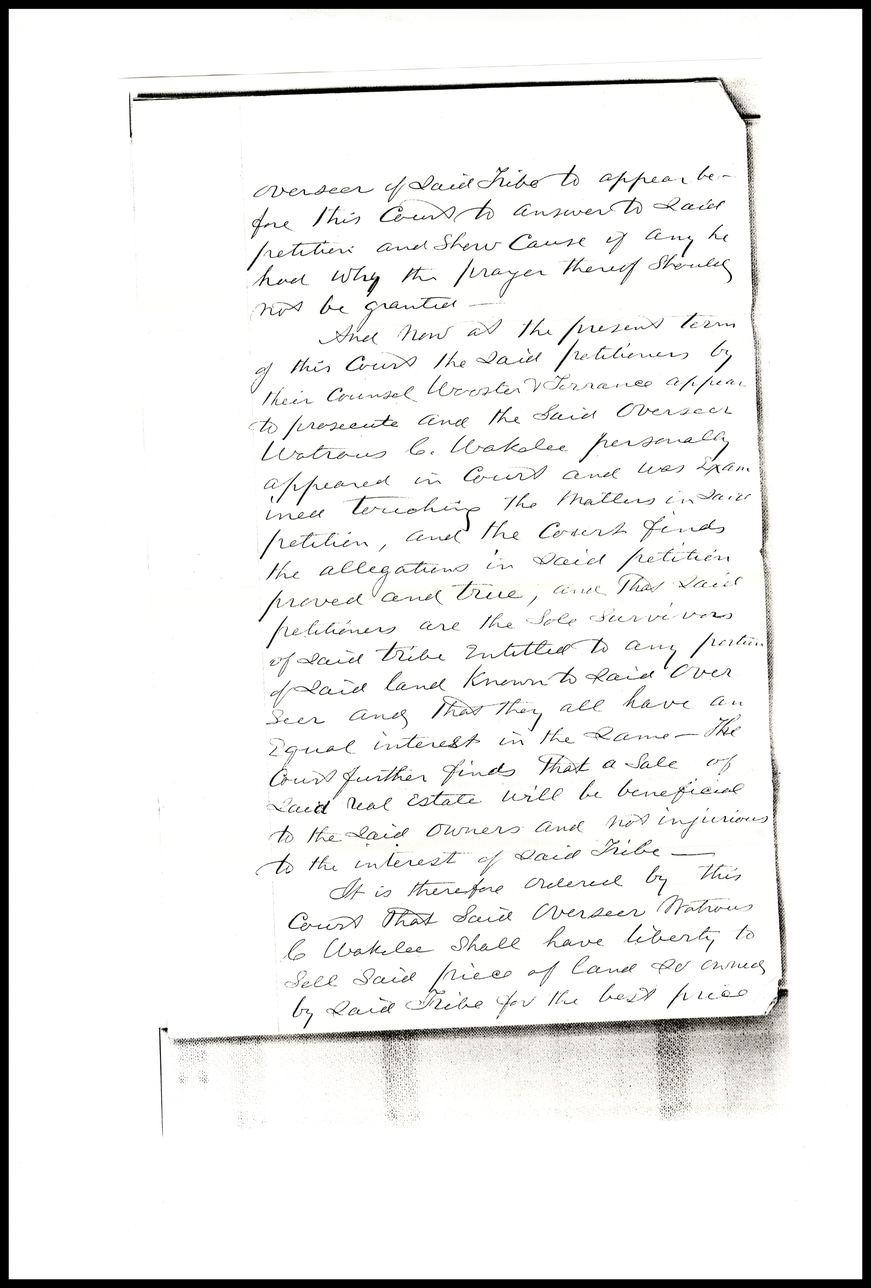 overseer of Said Tribe to appear be-
fore this Court to answer to Said
petition and Show Cause if any he
had why the prayer thereof Should
not be granted —
And now at the present term
of this Court the Said petitioners by
their Counsel Wooster & Torrance appear
to prosecute and the Said Overseer
Watrous C. Wakelee personally
appeared in Court and was Exam
ined touching the Matters in Said
petition, and the Court finds
the allegations in Said petition
proved and true, and That Said
petitioners are the Sole Survivors
of Said tribe Entitled to any portion
of Said land Known to Said Over
Seer and That they all have an
Equal interest in the Same — The
Court further finds That a Sale of
Said real Estate will be beneficial
to the Said owners and not injurious
to the interest of Said Tribe —
It is therefore ordered by this
Court That Said Overseer Watrous
C Wakelee Shall have liberty to
Sell Said piece of land So owned
by Said Tribe for the best price